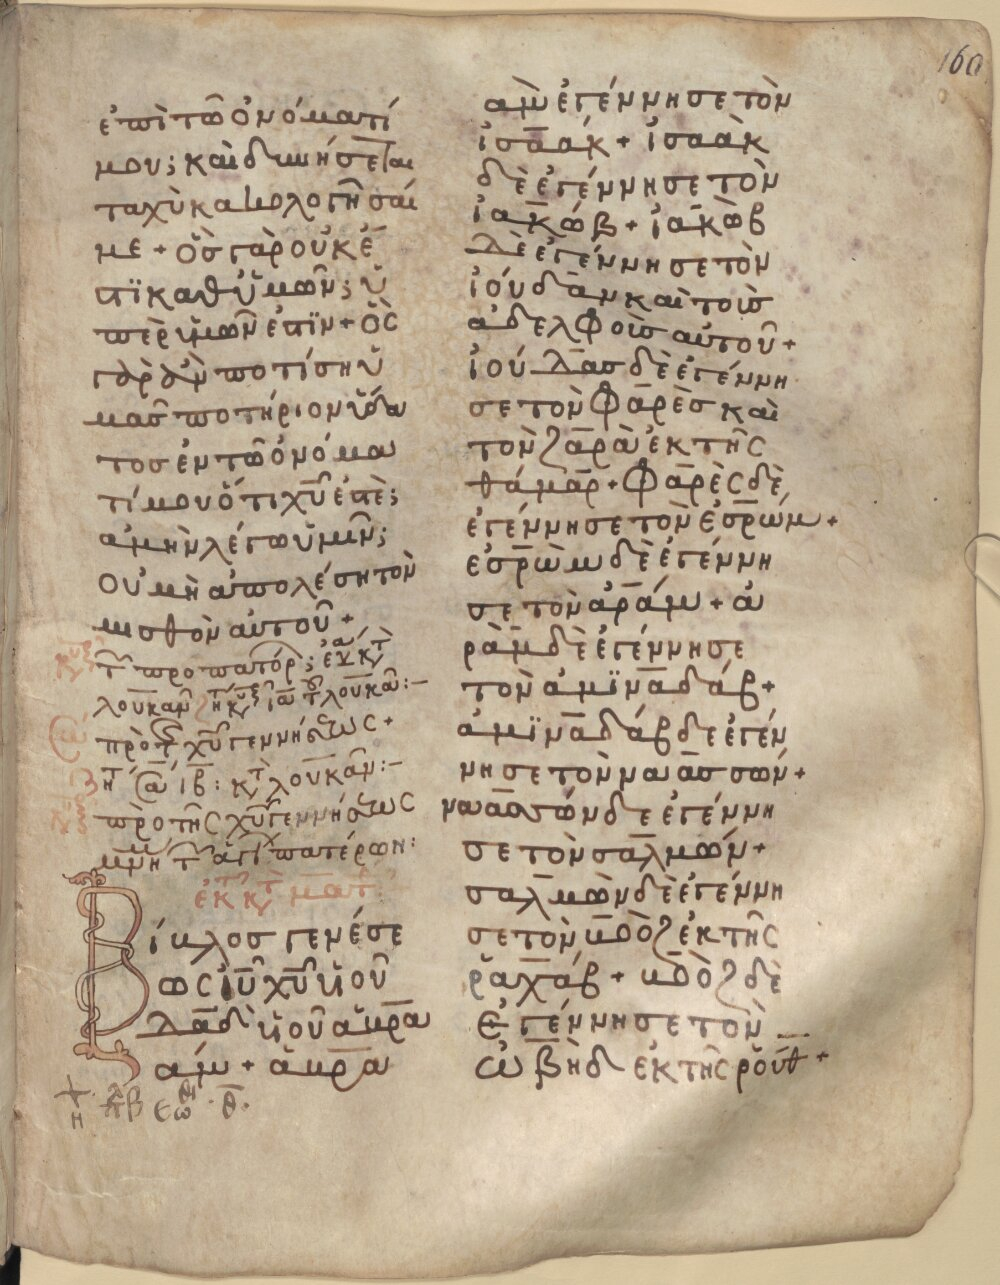 160
ἐπὶ τῶ ὀνόματί
μου; καὶ δυνήσεται
ταχὺ κακολογῆσαί
με + ὃς γὰρ οὐκ ἔ
πϊ καθ ὑμῶν; ὑ
πὲρ ἡμῶν ἐπϊν + ὃς
γὰρ ἂν ποτίση ὑ
μᾶσ ποτήριον ὕδα
τοσ ἐν τῶ ὀνόμα
τί μου ὅτι χῦ ἐπὲ;
ἀμὴν λέγω ὑμῖν;
οὐ μὴ ἀπολέση τὸν
μισθὸν αὐτοῦ +
τῶ προπατόρ;
λουκᾶν λουκᾶν:-
πρὸ τ χῦ γεννήσεως +
ιβ: κ λουκᾶν:-
πρὸ τῆς χῦ γεννήσεως
μνη τ ἁγί πατέρων:
ἐκ κ ματ
Βίβλοσ γενέσε
ως ἰῦ χῦ υἱοῦ
δᾱδ υἱοῦ ἀβρα
άμ + ἀβρα
ὰμ ἐγέννησε τὸν
ἰσαάκ + ἰσαὰκ
δὲ ἐγέννησε τὸν
ἰακώβ + ἰακὼβ
δὲ ἐγέννησε τὸν
ἰούδαν καὶ τοὶσ
ἀδελφοὶσ αὐτοῦ +
ἰούδασ δὲ ἐγέννη
σε τὸν φαρὲσ καὶ
τὸν ζαρὰ ἐκ τῆς
θάμαρ + φαρὲς δὲ
ἐγέννησε τὸν ἐσρώμ +
ἐσρὼμ δὲ ἐγέννη
σε τὸν ἀράμ + ἀ
ρὰμ δὲ ἐγέννησε
τὸν ἀμϊναδάβ +
ἀμϊναδάβ δε ἐγέν
νησε τὸν ναασσών +
ναασσών δε ἐγέννη
σε τὸν σαλμών +
σαλμὼν δὲ ἐγέννη
σε τὸν βοὸζ ἐκ τῆς
ῥαχάβ + βοὸζ δὲ
ἐγέννησε τὸν
ὠβὴδ ἐκ τῆς ῥούθ +